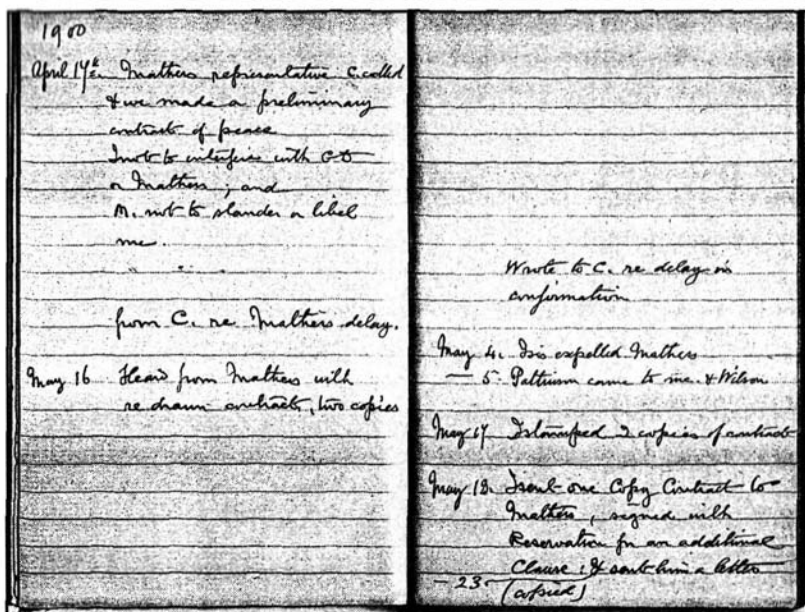 1900
April 17th. Mathers representative C. called
& we made a preliminary
contract of peace
I not to interfere with GD
or Mathers; and
M. not to slander or libel
me.
from C. re Mathers delay.
May 16 Heard from Mathers with
re drawn contracts, two copies
Wrote to C. re delay in
confirmation
May 4. Isis expelled Mathers
— 5. came to me. & Wilson
May 17 I stamped 2 copies of contract
May 18. I sent one Copy Contract to
Mathers, signed with
Reservation for an additional
Clause: & sent him a letter
— 23 (copied)